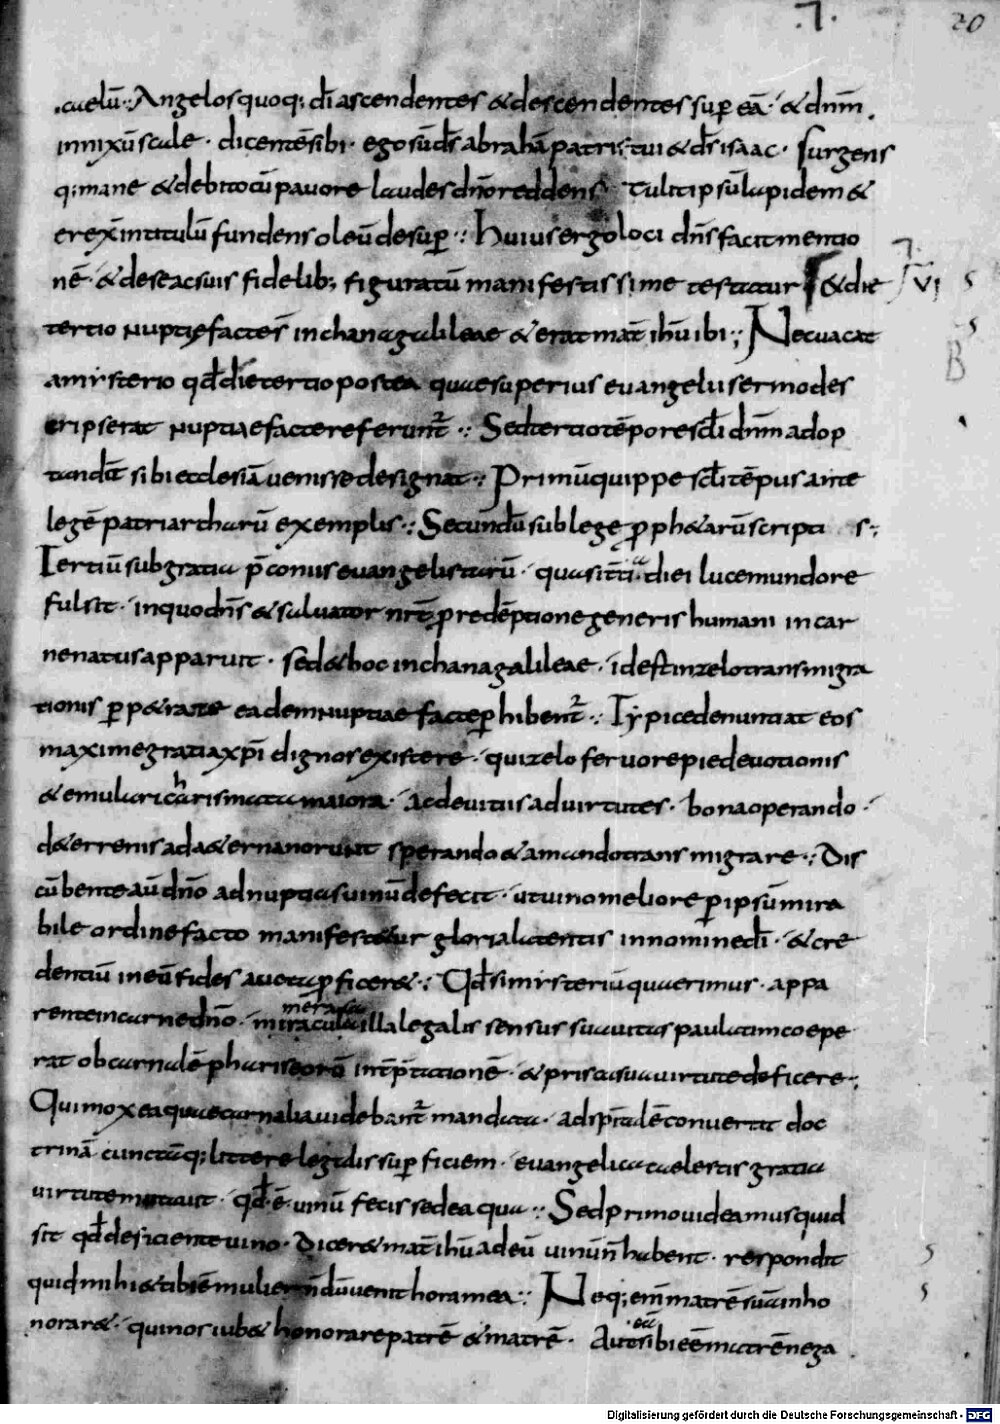 .7. 20
caelū·: Angelos quoq; dī ascendentes & descendentes sup eā· & dnm̄
innixū scale· dicentē sibi· ego sū ds̄ abrahā patris tui & ds̄ isaac· Surgens
q; mane & debito cū pavore laudes dn̄o reddens Tulit ipsū lapidem &
erex̄ in titulū fundens oleū desup·: Huius ergo loci dn̄s facit mentio
nē· & de se ac suis fidelib; figuratū manifestissime testatur & die 7. VI
tertio nuptię factę s̄ in chana galileae & erat mat̄ ihū ibi·; Nec vacat
a mysterio qd̄ die tertio post ea quae superius evangelii sermo des
cripserat nuptiae facte referunt̄·: Sed tertio tēpore scl̄i dnm̄ adop
tandā sibi ecclesiā venisse designat·: Primū quippe scl̄i tēpus ante
legē patriarcharū exemplis·: Secundū sub lege pph&arū scripti s·;
Tertiū sub gratia p̄coniis evangelistarū· quasi t̄tia diei luce mundo re
fulsit· in quo dn̄s & salvator nr̄ p redēptione generis humani in car
ne natus apparuit· sed & hoc in chana galileae· id est in zelo transmigra
tionis p p&rate eadem nuptiae facte phibent̄·: Typice denuntiat eos
maxime gratia xp̄i dignos existere· qui zelo fervore pie devotionis
& emulari charismata maiora· ac de vitiis ad virtutes· bona operando·
d& errenis ad a&erna norunt sperando & amando transmigrare·: Dis
cūbente aū dn̄o ad nuptias vinū defecit· ut vino meliore p ipsū mira
bile ordine facto manifestetur gloria latentis in nomine dī· & cre
dentiū in eū fides aucta pficer&·: Qd̄ si misteriū quaerimus· appa
rente in carne dn̄o· miracula illa legalis sensus suavitas paulatim coepe
rat ob carnalē phariseorū int̄p̄tationē· & prisca sua virtute deficere·;
Qui mox ea quae carnalia videbant̄ mandata· ad spīt̄alē convertit doc
trinā cunctāq; littere legalis supficiem· evangelica caelestis gratia
virtute mutavit· qd̄·ē· vinū fecisse de aqua·: Sed primo videamus quid
sit qd̄ deficiente vino· Dicer& mat̄ ihū ad eū vinū n̄ habent· respondit
quid mihi & tibi ē mulier n̄dū venit hora mea·: Neq; em̄ matrē suā inho
norar&· qui nos iub& honorare patrē & matrē· Aut sibi eē matrē nega
Digitalisierung gefördert durch die Deutsche Forschungsgemeinschaft - DFG